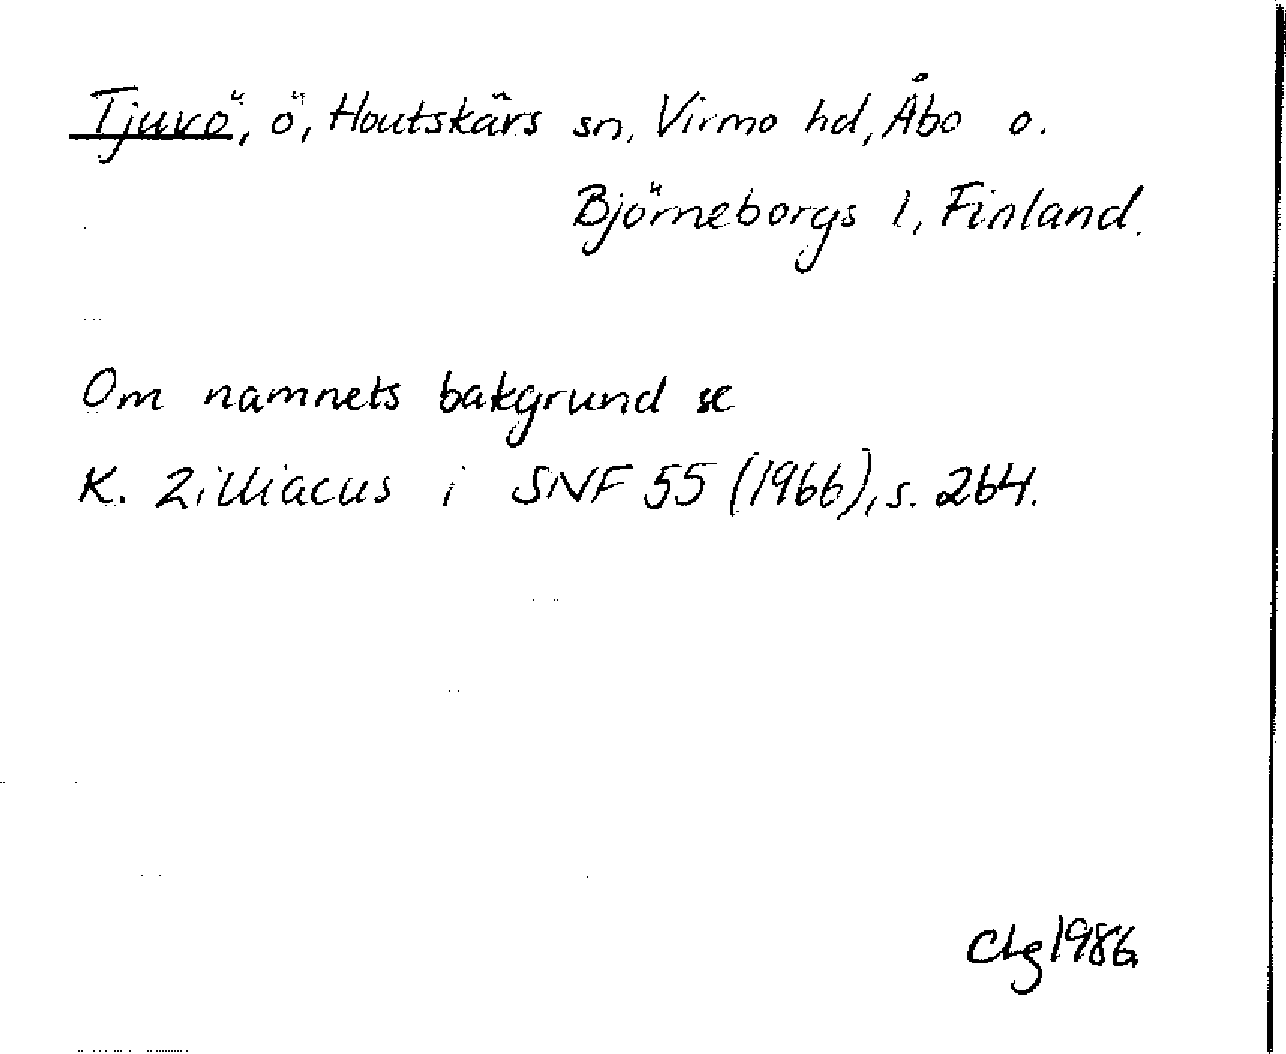 Tjuvö, ö, Houtskärs sn, Virmo hd, Åbo o.
Björneborgs l, Finland.
Om namnets bakgrund se
K. Zilliacus i SNF 55 (1966), s. 264.
CLg 1986